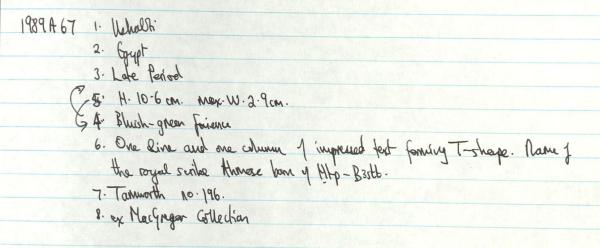 1989 A 67 1. Ushabti
2. Egypt
3. Late Period
5. H. 10·6 cm. max. W. 2·9cm.
4. Bluish-green faience
6. One line and one column of impressed text forming T-shape. Name of
the royal scribe Ahmose born of Ḥtp-B3stt.
7. Tamworth no. 196.
8. ex MacGregor Collection